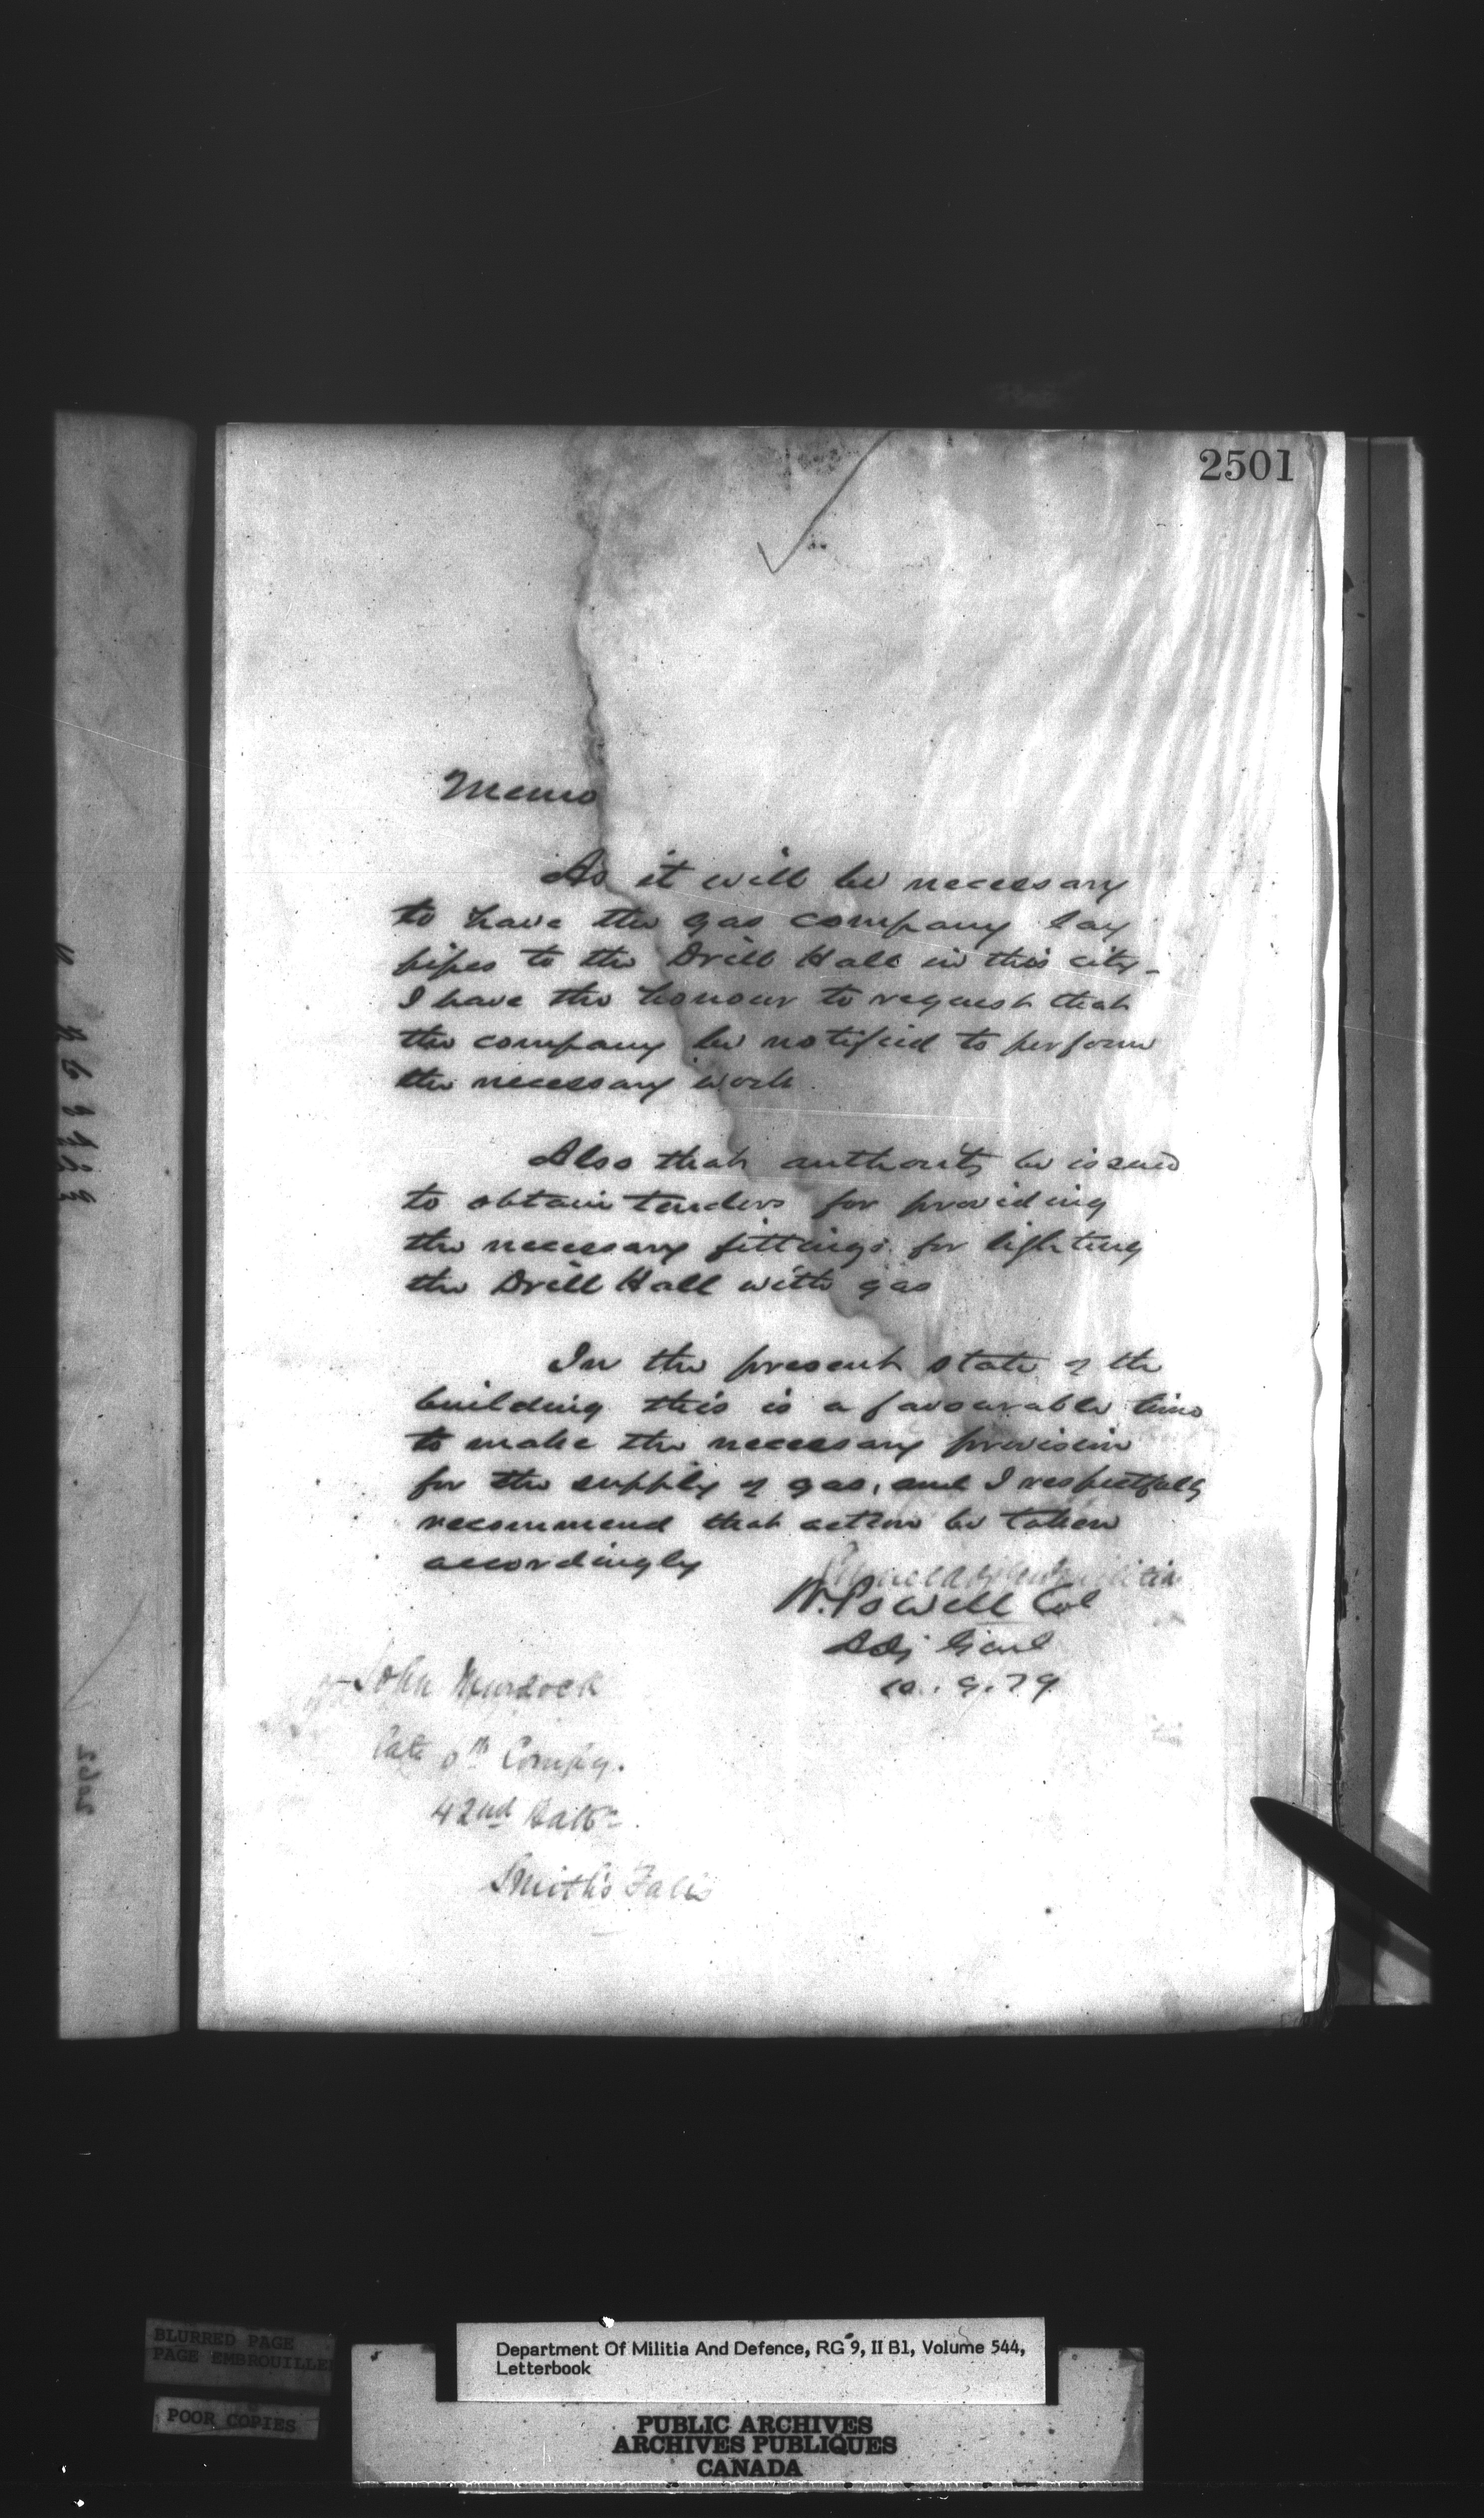 2501
Memo
As it will be necessary
to have the gas company lay
pipes to the Drill Hall in this city -
I have the honour to request that
the company be notified to perform
the necessary work.
Also that authority be issued
to obtain tenders for providing
the necessary fittings for lighting
the Drill Hall with gas
In the present state of the
building this is a favourable time
to make the necessary provision
for the supply of gas, and I respectfully
recommend that action be taken
accordingly
W. Powell Col
Adj Genl
10.9.79
John Murdock
late 6th Compy.
42nd Battn.
Smith's Falls
BLURRED PAGE
PAGE EMBROUILLEE
POOR COPIES
Department Of Militia And Defence, RG 9, II B1, Volume 544,
Letterbook
PUBLIC ARCHIVES
ARCHIVES PUBLIQUES
CANADA